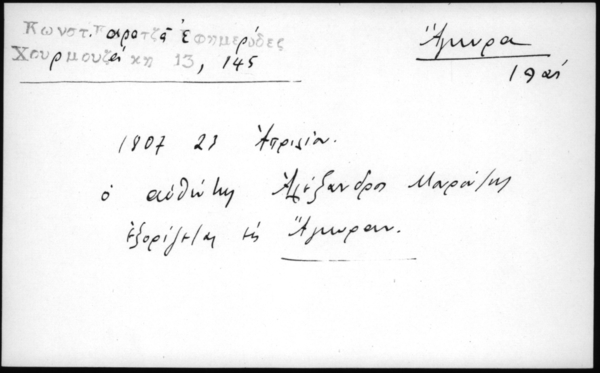 Κωνστ. Καρατζᾶ Ἐφημερίδες
Χουρμουζάκη 13, 145
Ἄγκυρα
1807 23 Ἀπριλίου.
ὁ αὐθέντης Ἀλέξανδρος Μουρούζης
ἐξορίζεται εἰς Ἄγκυραν.